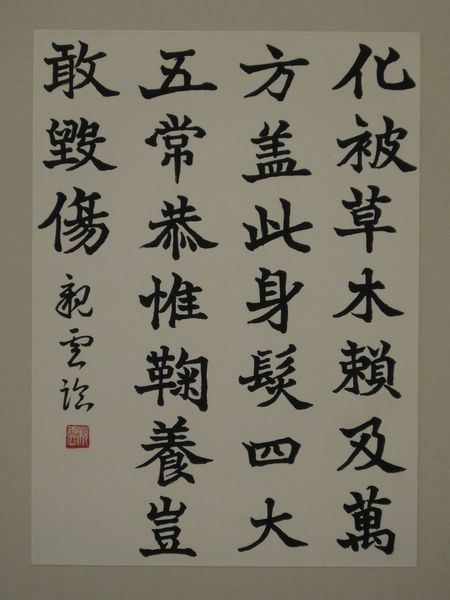 化被草木賴及萬
方盖此身髮四大
五常恭惟鞠養豈
敢毀傷
觀雲臨